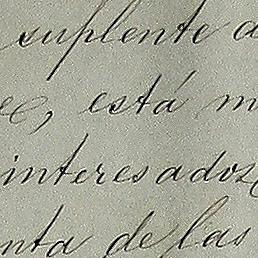 suplente a
está m
interesados
nta de las